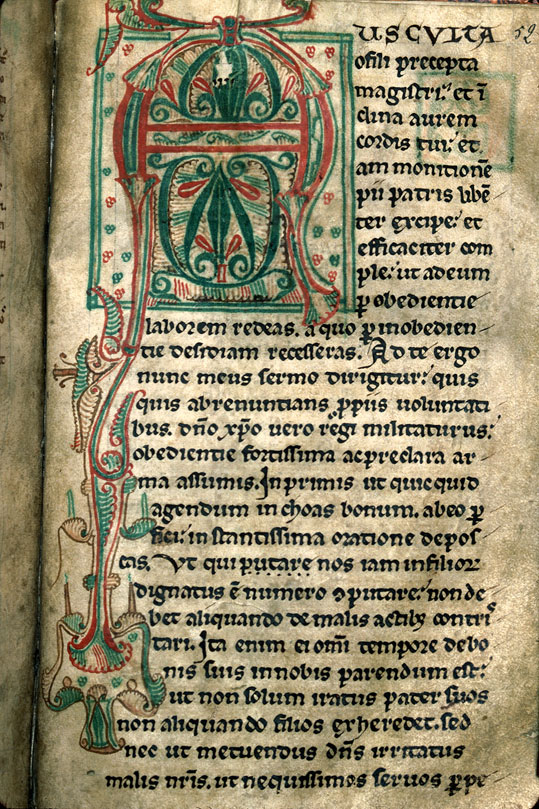 AUSCULTA
ofili precepta
magistri: et ī
clina aurem
cordis tui: et
am monitionē
pii patris libē
ter excipe: et
efficaciter com
ple: ut adeum
p obedientie
laborem redeas. a quo p inobedien
tie desidiam recesseras. Ad te ergo
nunc meus sermo dirigitur: quis
quis abrenuntians ppiis voluntati
bus. dño xp̄o vero regi militaturus:
obedientie fortissima acpreclara ar
ma assumis. In primis ut quicquid
agendum inchoas bonum. abeo p
fici: instantissima oratione depos
cas. Ut qui putare nos iam infilioꝝ
dignatus ē numero ꝯputare: non de
bet aliquando de malis actibꝫ contrı
tari. Ita enim ei om̄i tempore de bo
nis suis innobis parendum est:
ut non solum iratus pater suos
non aliquando filios exheredet. sed
nec ut metuendus dn̄s irritatus
malis nr̄is. ut nequissimos servos ppe
52